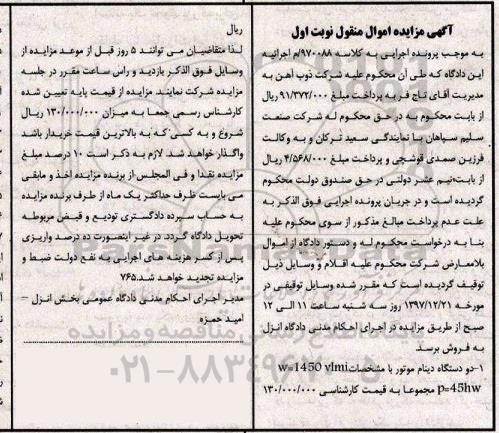 آگهی مزایده اموال منقول نوبت اول
به موجب پرونده اجرایی به کلاسه ۹۷۰۰۸۸/م اجرائیه
این دادگاه که طی آن محکوم علیه شرکت ذوب آهن به
مدیریت آقای تاج فر به پرداخت مبلغ ۹۱/۳۷۲/۰۰۰ ریال
از بابت محکوم به در حق محکوم له شرکت صنعت
سلیم سپاهان با نمایندگی سعید ترکان و به وکالت
فرزین صمدی قوشچی و پرداخت مبلغ ۴/۵۶۸/۰۰۰ ریال
از بابت نیم عشر دولتی در حق صندوق دولت محکوم
گردیده است و در جریان پرونده اجرایی فوق الذکر به
علت عدم پرداخت مبالغ مذکور از سوی محکوم علیه
بنا به درخواست محکوم له و دستور دادگاه از اموال
بلامعارض شرکت محکوم علیه اقلام و وسایل ذیل
توقیف گردیده است که مقرر شده وسایل توقیفی در
مورخه ۱۳۹۷/۱۲/۲۱ روز سه شنبه ساعت ۱۱ الی ۱۲
صبح از طریق مزایده در اجرای احکام مدنی دادگاه انزل
به فروش برسد.
۱-دو دستگاه دینام موتور با مشخصات w=1450 vlmi
p=45hw مجموعا به قیمت کارشناسی ۱۳۰/۰۰۰/۰۰۰
ریال
لذا متقاضیان می توانند ۵ روز قبل از موعد مزایده از
وسایل فوق الذکر بازدید و راس ساعت مقرر در جلسه
مزایده شرکت نمایند. مزایده از قیمت پایه تعیین شده
کارشناس رسمی جمعا به میزان ۱۳۰/۰۰۰/۰۰۰ ریال
شروع و به کسی که به بالاترین قیمت خریدار باشد
واگذار خواهد شد. لازم به ذکر است ۱۰ درصد مبلغ
مزایده نقدا و فی المجلس از برنده مزایده اخذ و مابقی
می بایست ظرف حداکثر یک ماه از طرف برنده مزایده
به حساب سپرده دادگستری تودیع و قبض مربوطه
تحویل دادگاه گردد. در غیر اینصورت ده درصد واریزی
پس از کسر هزینه های اجرایی به نفع دولت ضبط و
مزایده تجدید خواهد شد.۷۶۵
مدیر اجرای احکام مدنی دادگاه عمومی بخش انزل -
امید حمزه
پایگاه اطلاع رسانی مناقصه و مزایده
۰۲۱-۸۸۳۴۹۶۷۰-۵